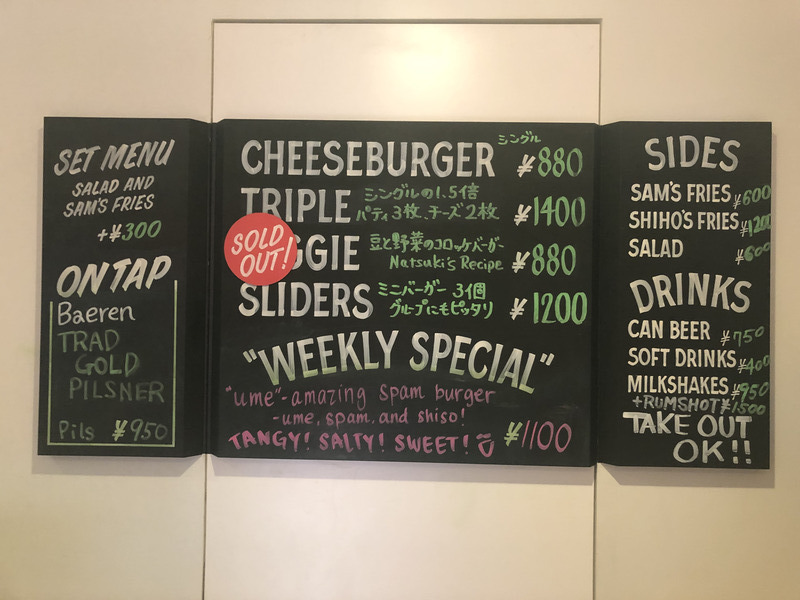 SET MENU
SALAD AND
SAM'S FRIES
+¥300
ON TAP
Baeren
TRAD
GOLD
PILSNER
Pils ¥950
シングル
CHEESEBURGER ¥880
TRIPLE シングルの1.5倍
パティ3枚、チーズ2枚 ¥1400
SOLD
OUT!
GGIE 豆と野菜のコロッケバーガー
Natsuki's Recipe ¥880
SLIDERS ミニバーガー 3個
グループにもピッタリ ¥1200
"WEEKLY SPECIAL"
"ume"-amazing spam burger
-ume, spam, and shiso!
TANGY! SALTY! SWEET! ¥1100
SIDES
SAM'S FRIES ¥600
SHIHO'S FRIES ¥1200
SALAD ¥600
DRINKS
CAN BEER ¥750
SOFT DRINKS ¥400
MILKSHAKES ¥950
+RUMSHOT ¥1500
TAKE OUT
OK!!